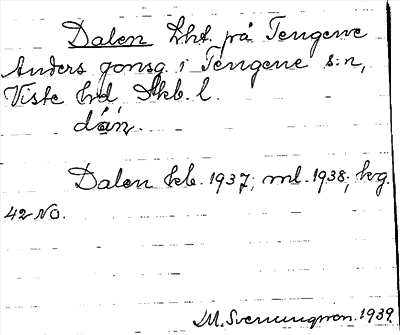 Dalen lht. på Tengene
Anders jonsg. i Tengene s:n,
Viste hd, Skb. l.
dán.
Dalen kb. 1937; ml. 1938; krg.
42 NO.
M. Svenungson. 1939.